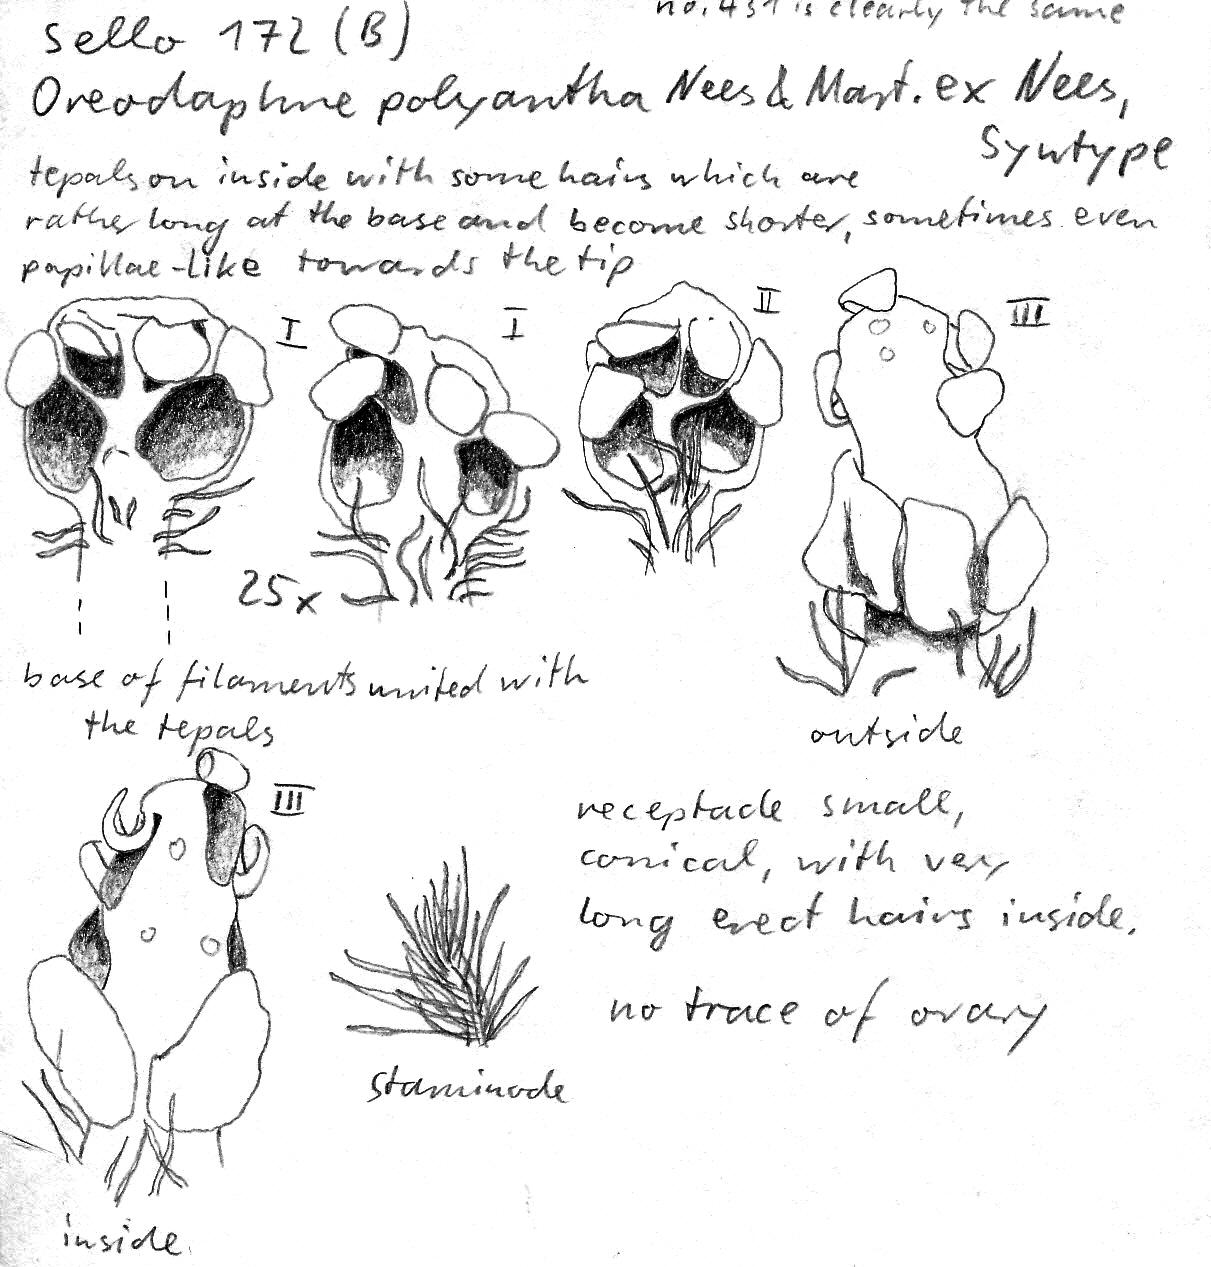 no. 431 is clearly the same
sello 172 (B)
Oreodaphne polyantha Nees & Mart. ex Nees,
Syntype
tepals on inside with some hairs which are
rather long at the base and become shorter, sometimes even
papillae-like towards the tip
I
I
II
III
25x
base of filaments united with
the tepals
outside
III
receptacle small,
conical, with very
long erect hairs inside.
no trace of ovary
staminode
inside.